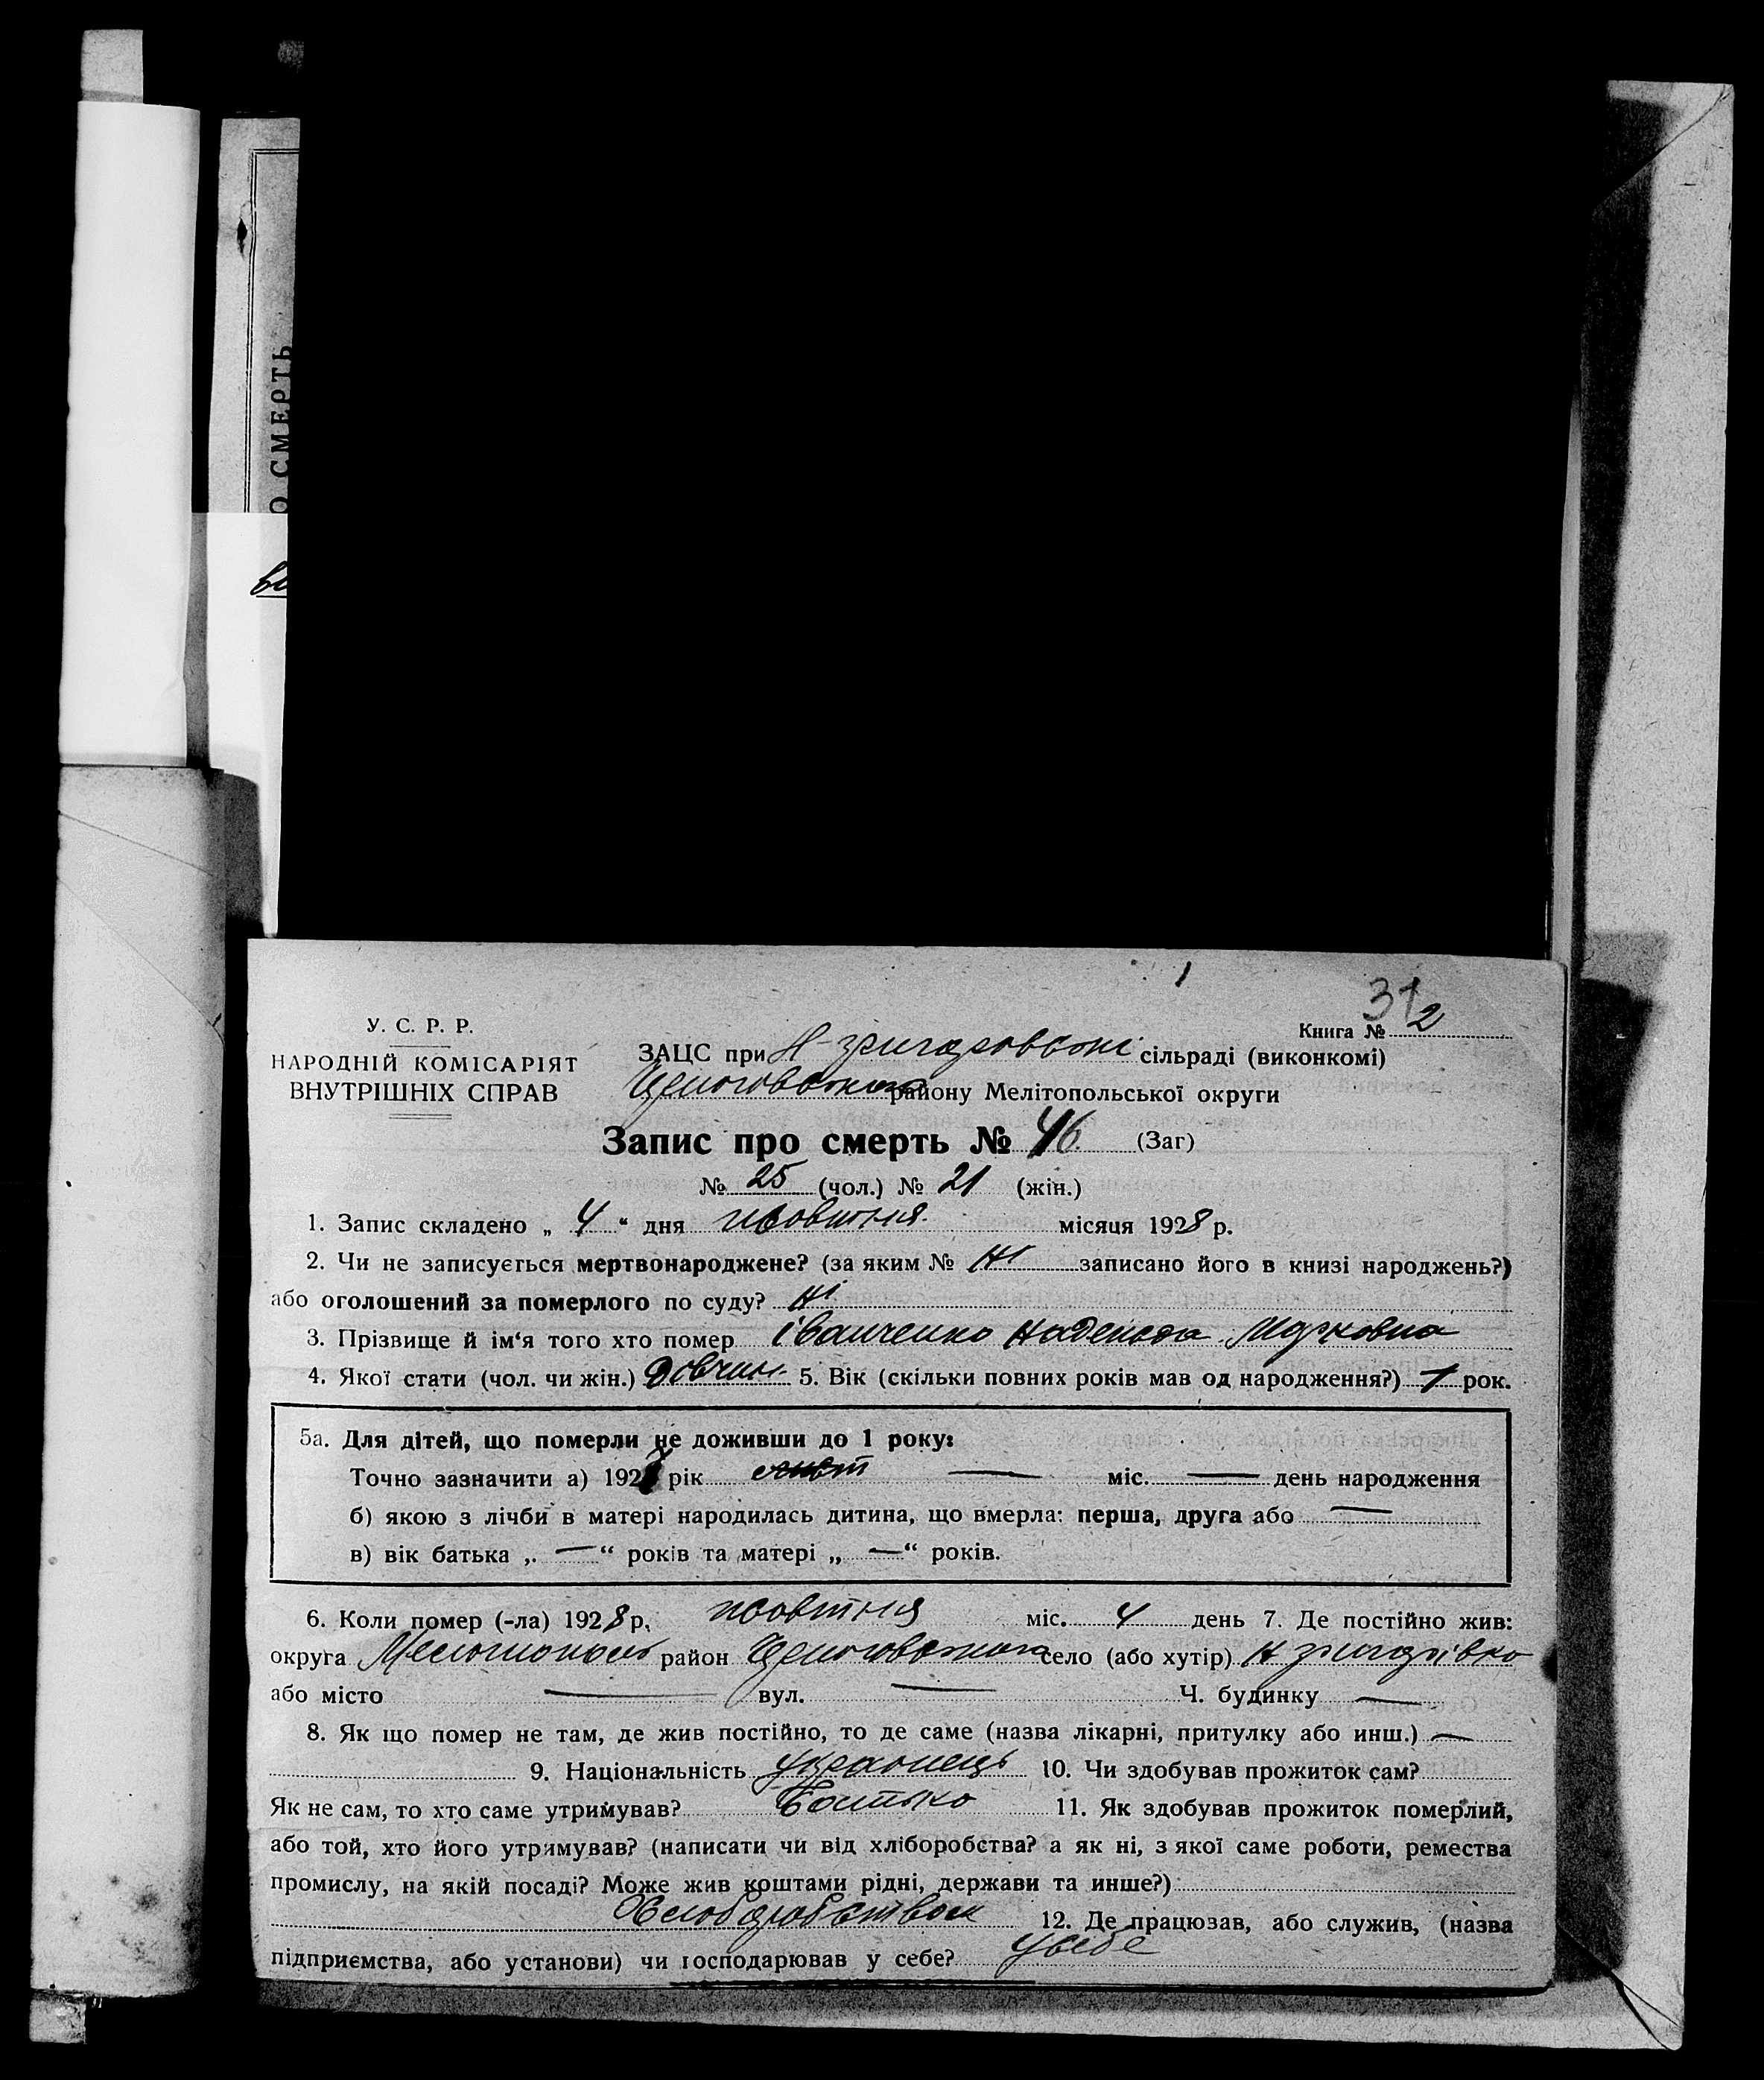 О СМЕРТЬ
1
312
У. С. Р. Р.
НАРОДНІЙ КОМІСАРІЯТ
ВНУТРІШНІХ СПРАВ
Книга № 2
ЗАЦС при Н-григоровській сільраді (виконкомі)
району Мелітопольської округи
Запис про смерть № 46 (Заг)
№ 25 (чол.) № 21 (жін.)
1. Запис складено „ 4 “ дня жовтня місяця 1928 р.
2. Чи не записується мертвонароджене? (за яким № Ні записано його в книзі народжень?)
або оголошений за померлого по суду? Ні
3. Прізвище й ім'я того хто помер Іванченко Надежда Марковна
4. Якої стати (чол. чи жін.) Дівчин. 5. Вік (скільки повних років мав од народження?) 1 рок.
5а. Для дітей, що померли не доживши до 1 року:
Точно зазначити а) 192 рік — міс. — день народження
б) якою з лічби в матері народилась дитина, що вмерла: перша, друга або —
в) вік батька „ — “ років та матері „ — “ років.
6. Коли помер (-ла) 1928 р. жовтня міс. 4 день 7. Де постійно жив:
округа Мелітополь район село (або хутір) Н григорівка
або місто — вул. — Ч. будинку —
8. Як що помер не там, де жив постійно, то де саме (назва лікарні, притулку або инш.) —
9. Національність Українець 10. Чи здобував прожиток сам?
Як не сам, то хто саме утримував? Батько 11. Як здобував прожиток померлий,
або той, хто його утримував? (написати чи від хліборобства? а як ні, з якої саме роботи, ремества
промислу, на якій посаді? Може жив коштами рідні, держави та инше?)
Хліборобством 12. Де працював, або служив, (назва
підприємства, або установи) чи господарював у себе? у себе